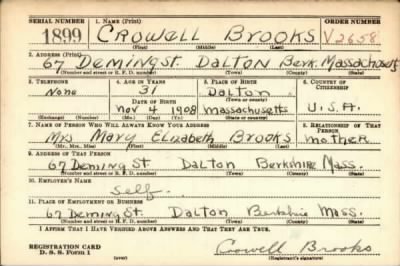 SERIAL NUMBER 1. NAME (Print) ORDER NUMBER
1899 CROWELL BROOKS V2658
(First) (Middle) (Last)
2. ADDRESS (Print)
67 Deming St. DALTON Berk. Massachusetts
(Number and street or R. F. D. number) (Town) (County) (State)
3. TELEPHONE 4. AGE IN YEARS 5. PLACE OF BIRTH 6. COUNTRY OF CITIZENSHIP
None 31 Dalton
DATE OF BIRTH (Town or county)
Nov 4 1908 Massachusetts U.S.A.
(Exchange) (Number) (Mo.) (Day) (Yr.) (State or country)
7. NAME OF PERSON WHO WILL ALWAYS KNOW YOUR ADDRESS 8. RELATIONSHIP OF THAT PERSON
Mrs Mary Elizabeth BROOKS mother
(Mr., Mrs., Miss) (First) (Middle) (Last)
9. ADDRESS OF THAT PERSON
67 Deming St DALTON Berkshire Mass.
(Number and street or R. F. D. number) (Town) (County) (State)
10. EMPLOYER'S NAME
Self.
11. PLACE OF EMPLOYMENT OR BUSINESS
67 Deming St. Dalton Berkshire Mass.
(Number and street or R. F. D. number) (Town) (County) (State)
I AFFIRM THAT I HAVE VERIFIED ABOVE ANSWERS AND THAT THEY ARE TRUE.
REGISTRATION CARD Crowell Brooks
D. S. S. Form 1 (over) (Registrant's signature)